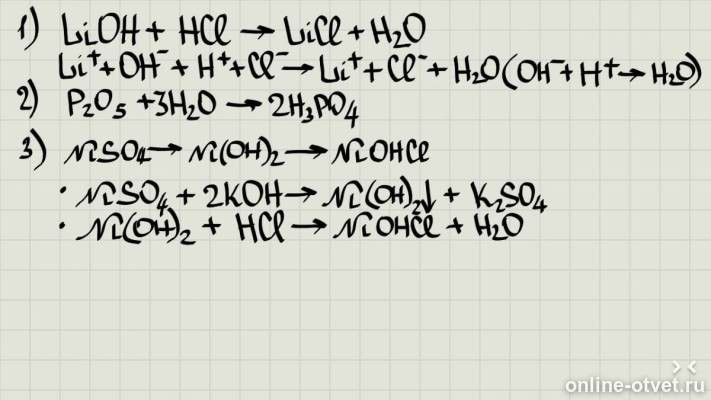 1) LiOH + HCl → LiCl + H₂O
Li⁺ + OH⁻ + H⁺ + Cl⁻ → Li⁺ + Cl⁻ + H₂O (OH⁻ + H⁺ → H₂O)
2) P₂O₅ + 3H₂O → 2H₃PO₄
3) NiSO₄ → Ni(OH)₂ → NiOHCl
· NiSO₄ + 2KOH → Ni(OH)₂↓ + K₂SO₄
· Ni(OH)₂ + HCl → NiOHCl + H₂O
online-otvet.ru